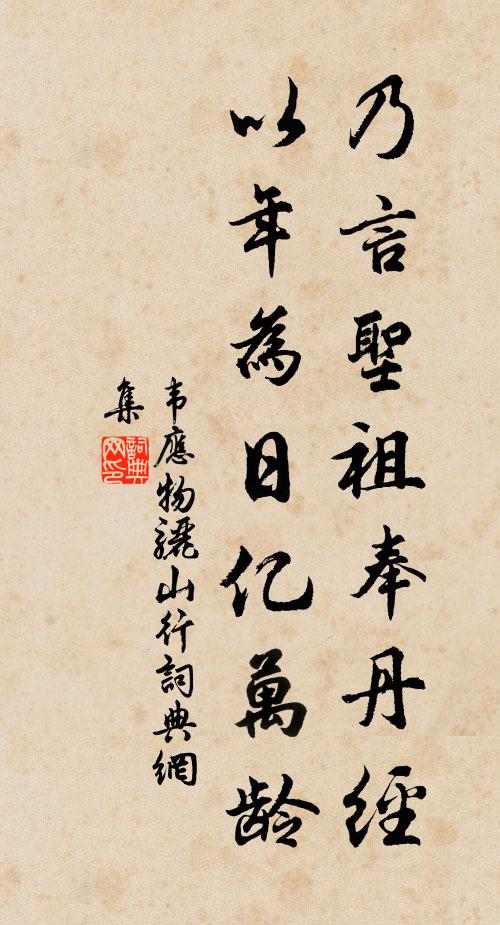 乃言聖祖奉丹經
以年為日亿萬齡
韦應物驪山行詞典網
集
詞典
网印